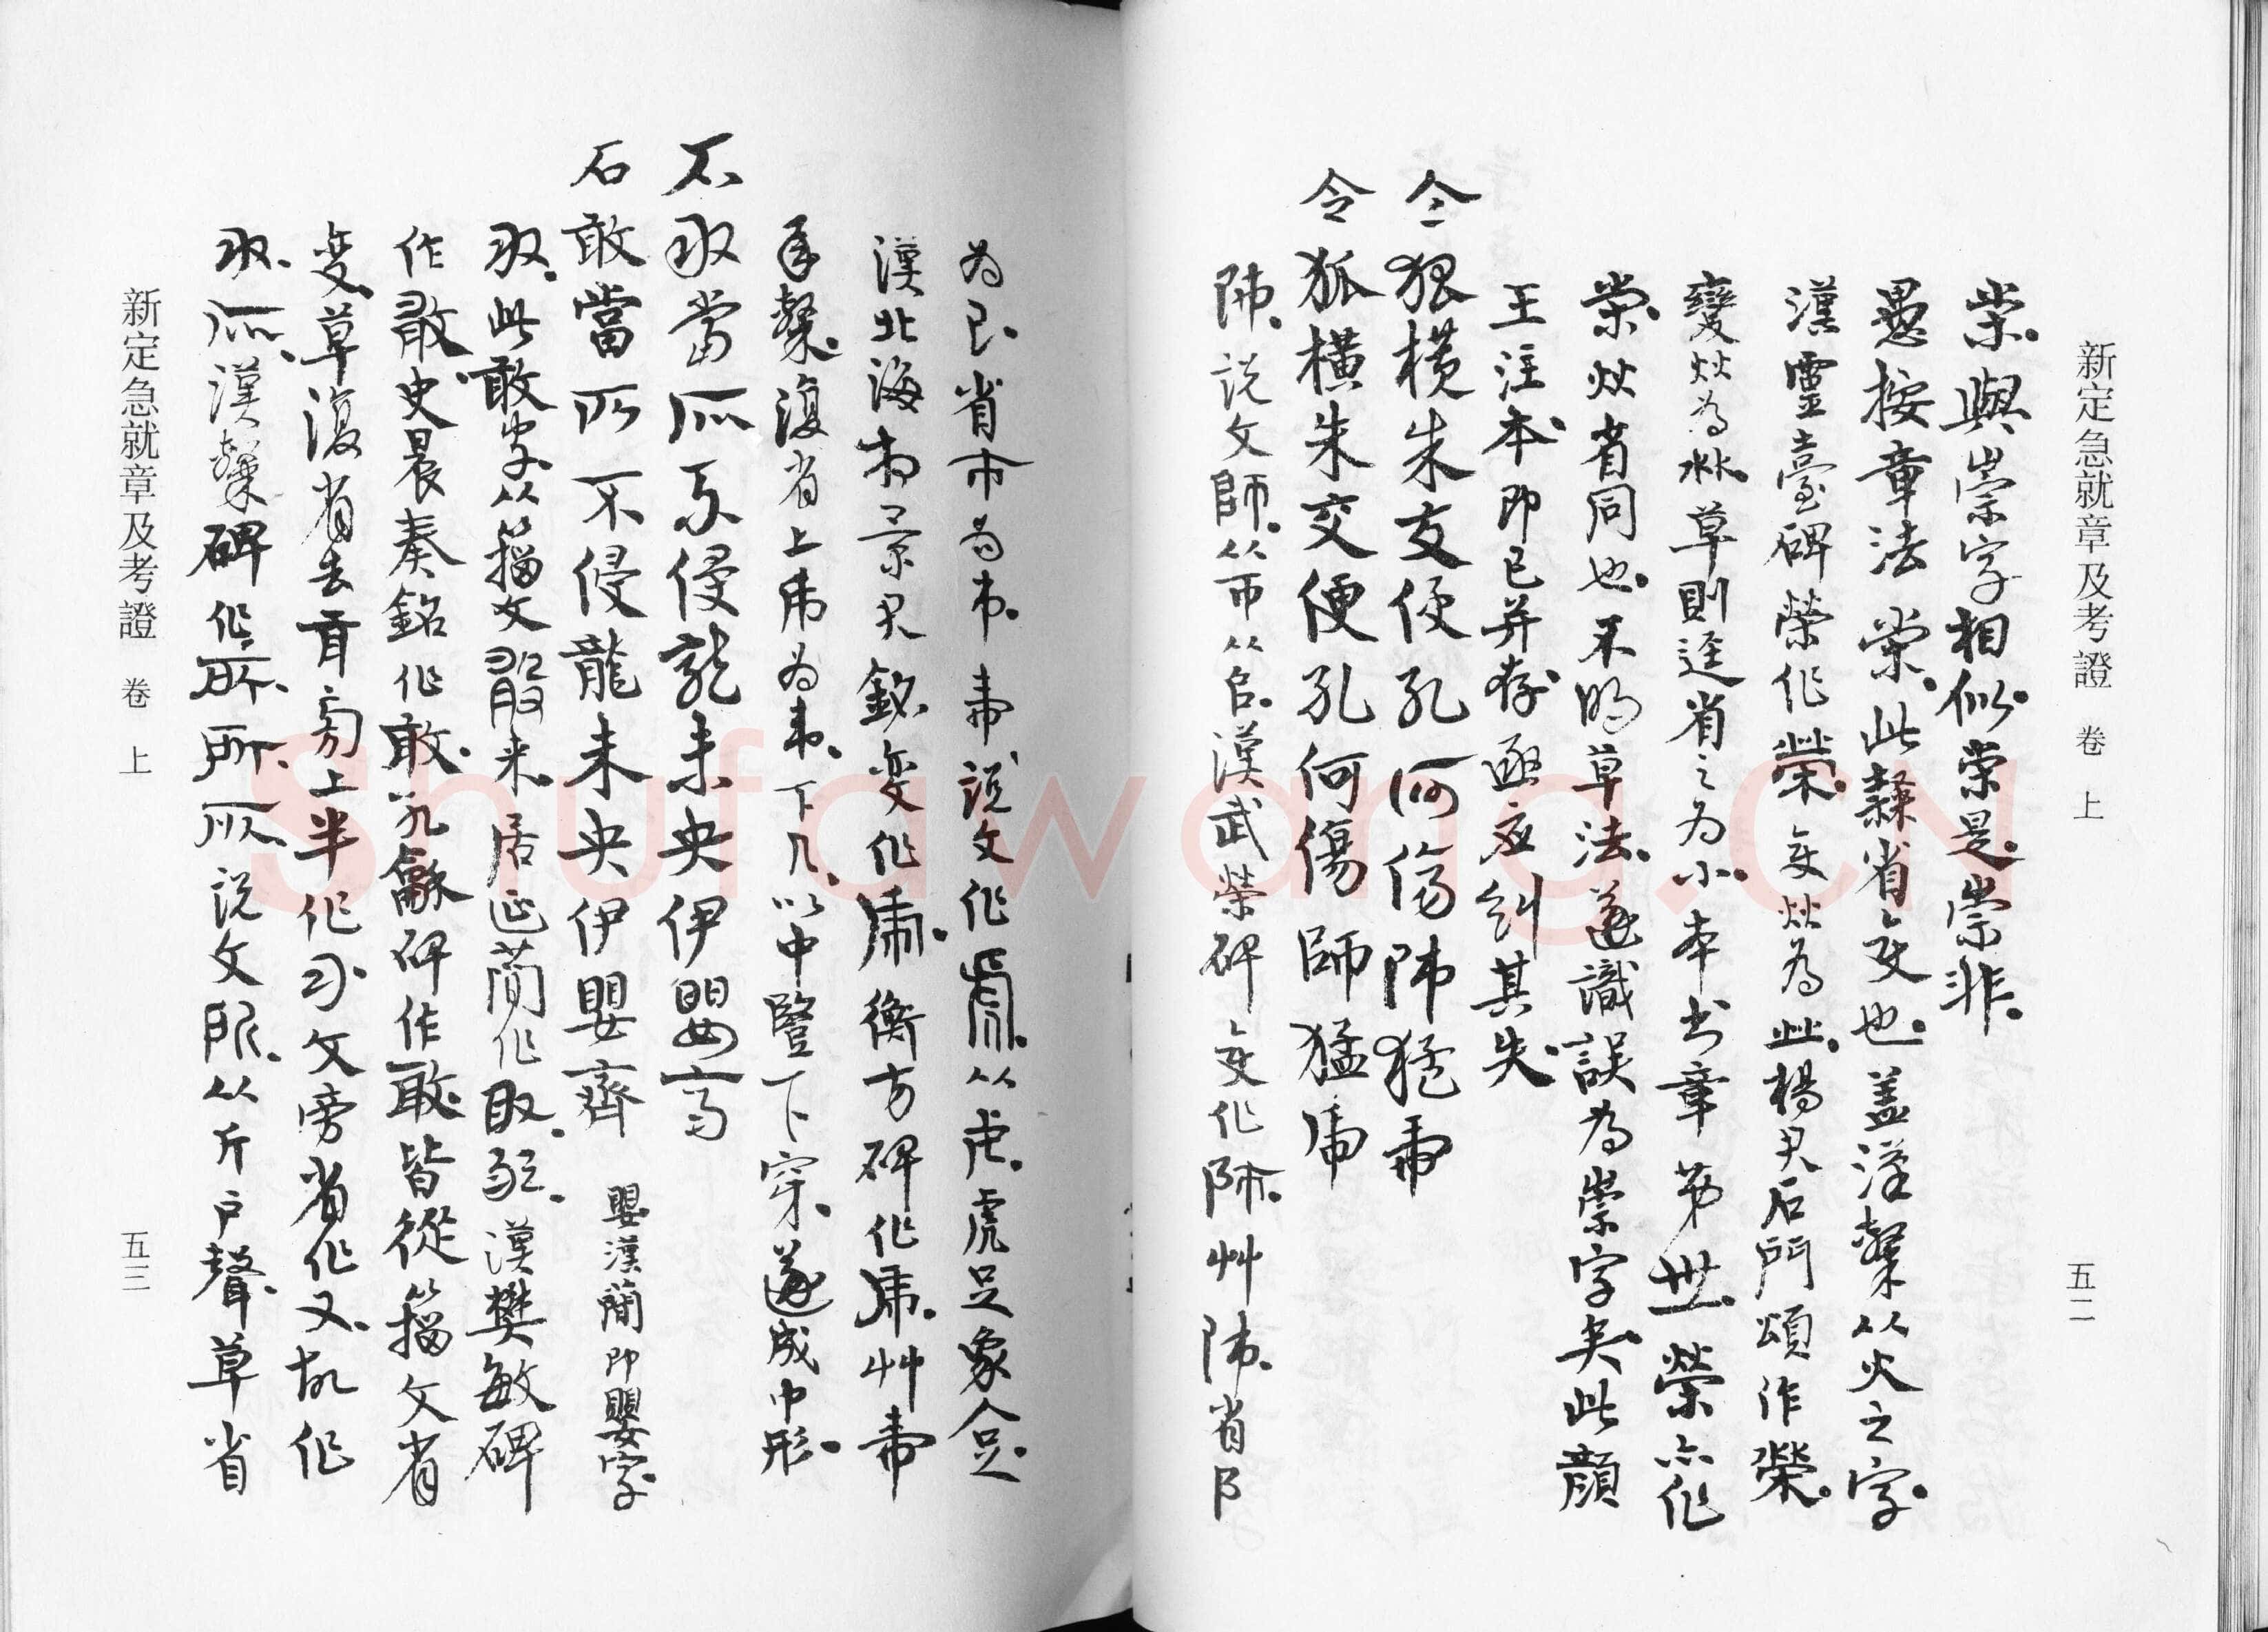 新定急就章及考證 卷上 五二
崇與崇字相似崇是崇非
愚按章法崇此隸省變也蓋漢隸从火之字
漢靈臺碑榮作榮變炏為 楊君石門頌作榮
變炏為 草則逕省之為小本書章第 榮亦作
崇炏省同也不明草法遂識誤為崇字矣此顏
王注本即已并存亟應糾其失
令狐橫朱交便孔何傷師猛虎
令狐橫朱交便孔何傷師猛虎
師說文師从帀从𠂤漢武榮碑變作師艸師省阝
為 省市為 虎說文作 从虍虎足象人足
漢北海相景君銘變作虎衡方碑作虎艸虎
承隸復省上 為 下几以中豎下穿遂成巾形
不敢當所不侵龍未央伊嬰齊
石敢當所不侵龍未央伊嬰齊 嬰漢簡即嬰字
敢此敢字从籀文 來居延簡作敢 漢樊敏碑
作敢史晨奏銘作敢孔龢碑作敢皆從籀文省
變草復省去 旁上半作 攵旁省作又故作
敢所漢隸碑作所所所說文所从斤戶聲草省
新定急就章及考證 卷上 五三
Shufawang.CN